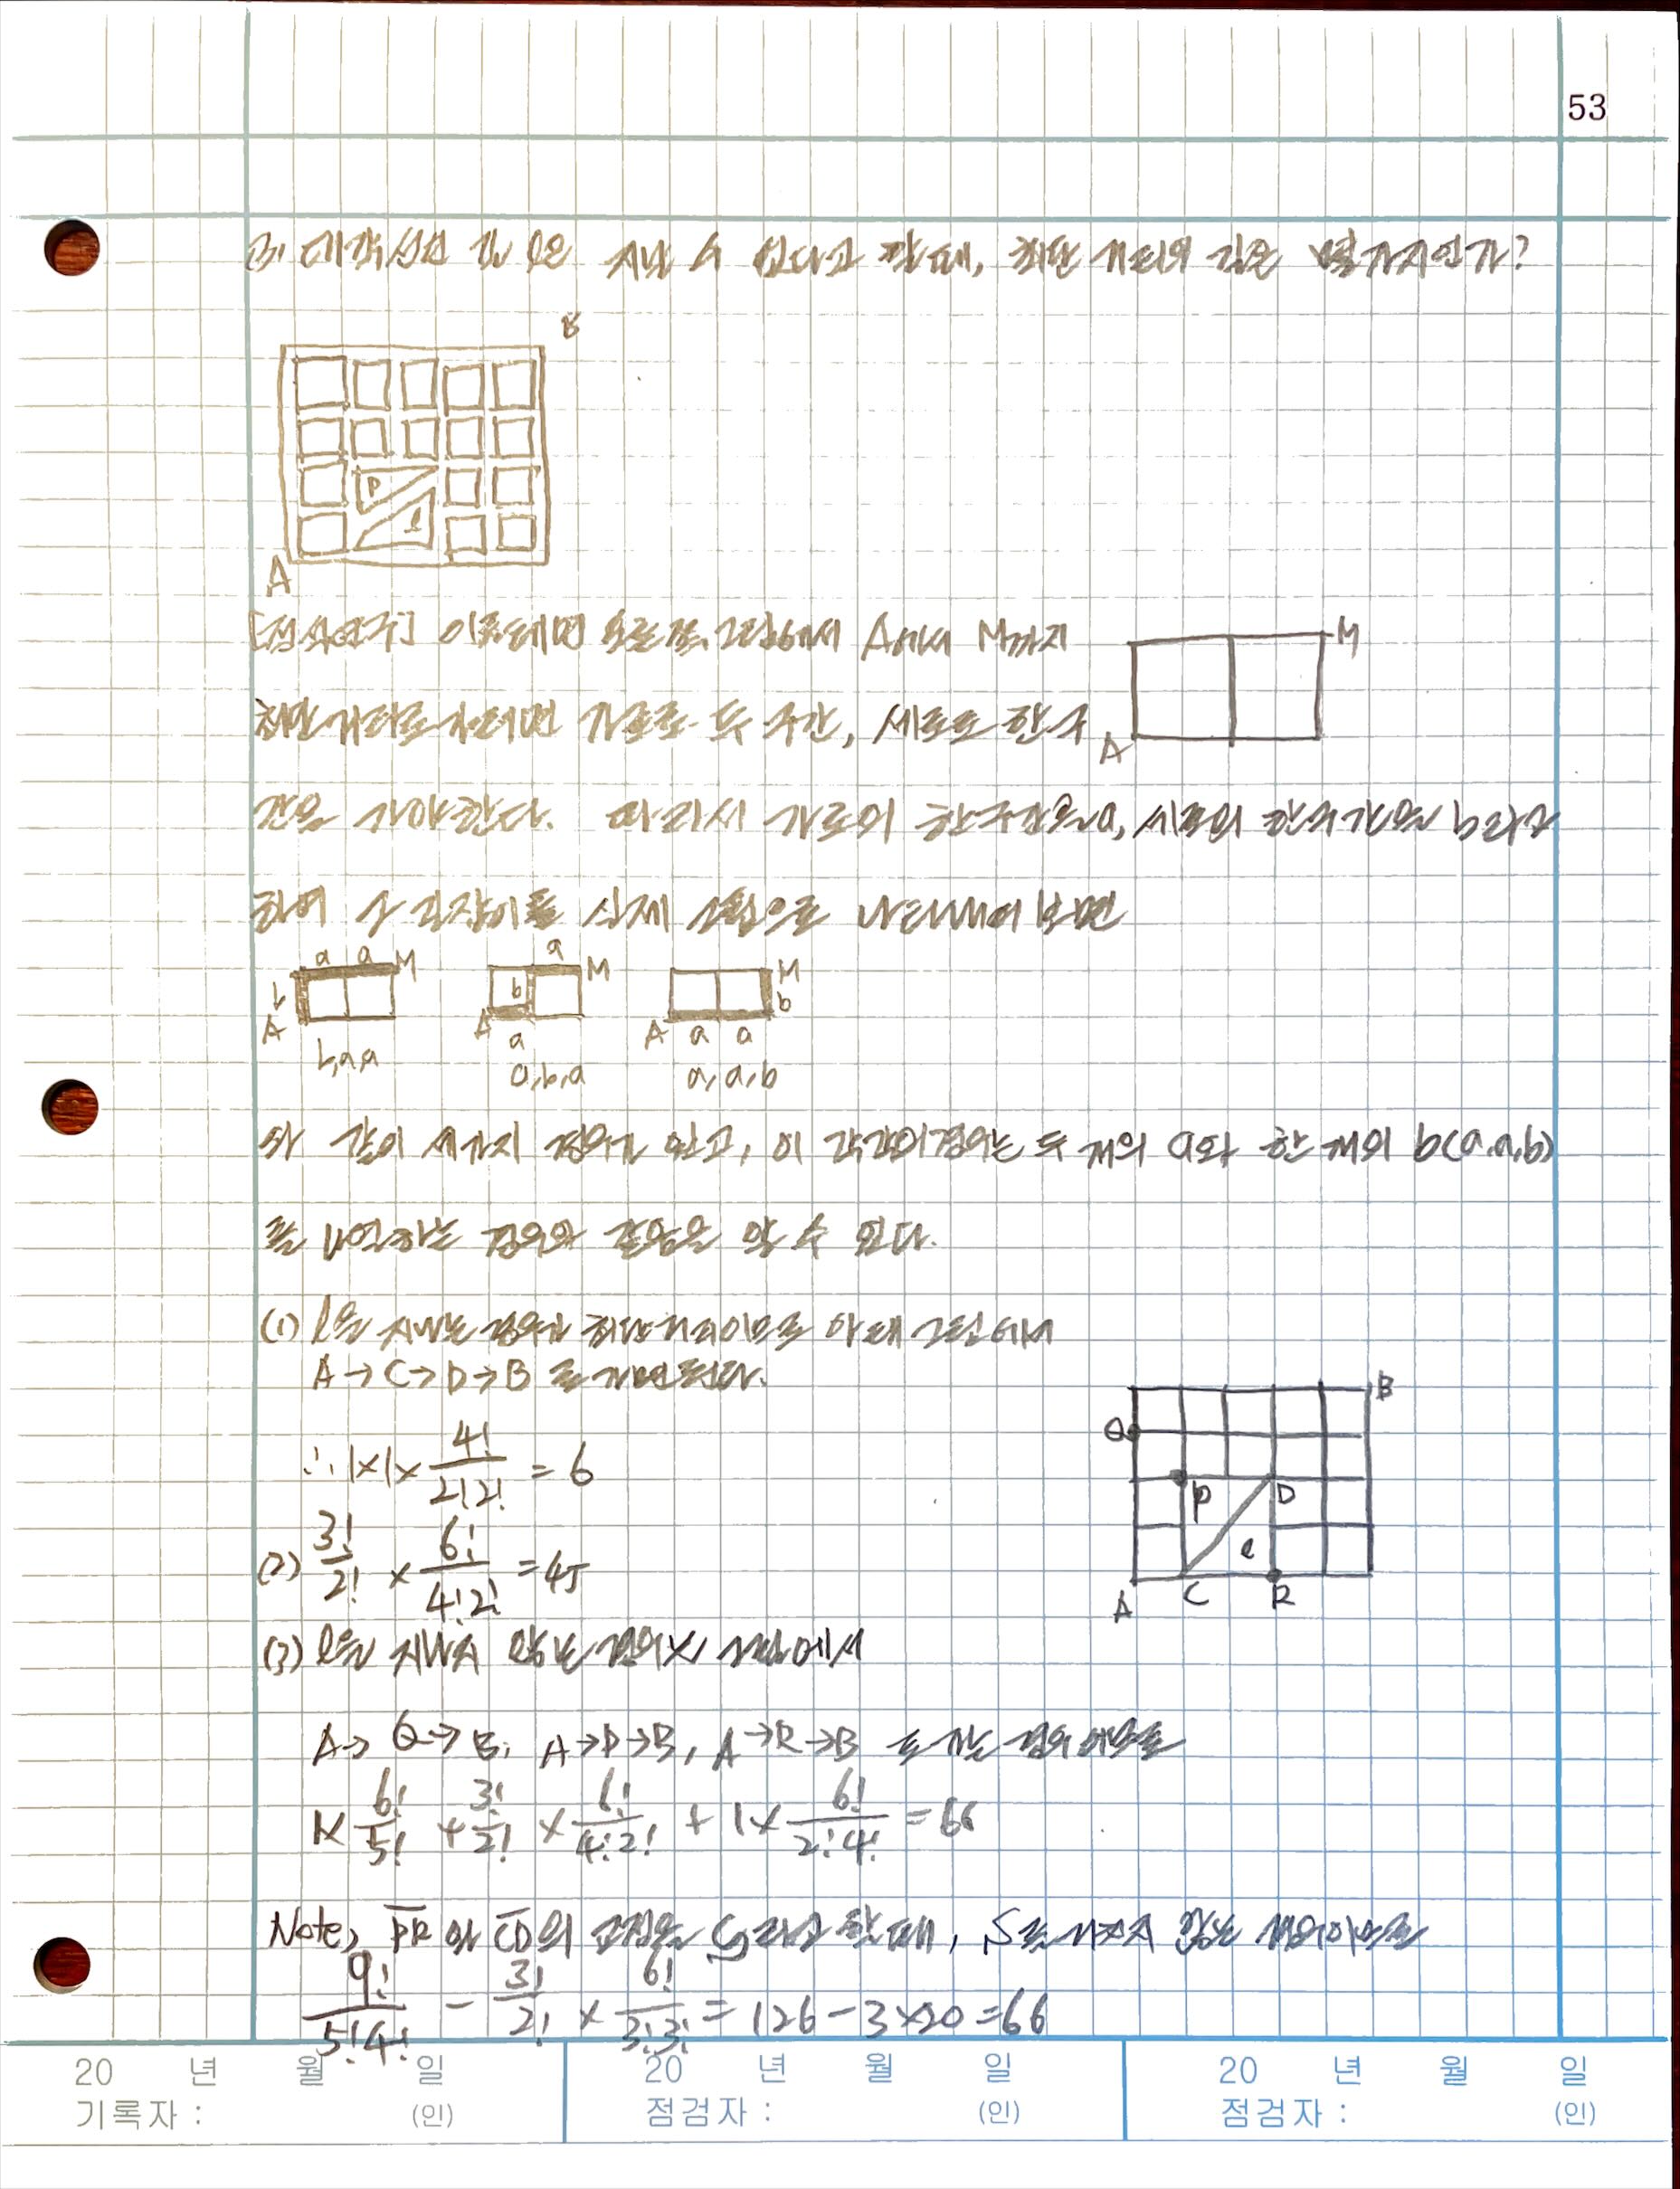 53
(3) 대각선인 길 l은 지날 수 없다고 할 때, 최단 거리의 길은 몇 가지인가?
B
P
l
A
[정석연구] 이를테면 오른쪽 그림에서 A에서 M까지
M
최단거리로 가려면 가로로 두 구간, 세로로 한 구
A
간을 가야 한다. 따라서 가로의 한 구간을 a, 세로의 한 구간을 b라고
하여 그 각각이를 실제 그림으로 나타내어 보면
a a M a M M
b b b
A A A a a
b,a,a a
a,b,a a,a,b
와 같이 세 가지 경우가 있고, 이 각각의 경우는 두 개의 a와 한 개의 b(a,a,b)
를 나열하는 경우와 같음을 알 수 있다.
(1) l을 지나는 경우가 최단거리이므로 아래 그림에서
A→C→D→B 를 가면 된다.
∴ 1×1× 4!/2!2! = 6
B
Q
P D
l
A C R
(2) 3!/2! × 6!/4!2! = 45
(3) l을 지나지 않는 경우 그림에서
A→Q→B, A→P→B, A→R→B 로 가는 경우이므로
1× 6!/5! + 3!/2! × 6!/4!2! + 1× 6!/2!4! = 66
Note) PR 와 CD의 교점을 S라고 할 때, S를 거치지 않는 경우이므로
9!/5!4! - 3!/2! × 6!/3!3! = 126 - 3×20 = 66
20 년 월 일 20 년 월 일 20 년 월 일
기록자 : (인) 점검자 : (인) 점검자 : (인)